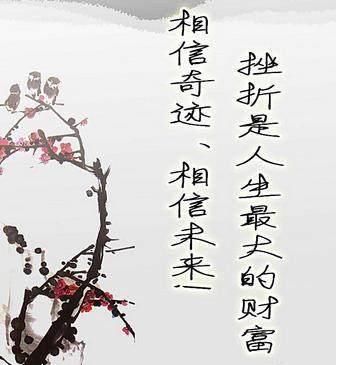 挫折是人生最大的财富
相信奇迹、相信未来!